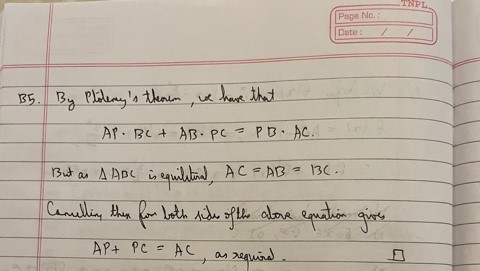 TNPL
Page No.:
Date: / /
B5. By Ptolemy's theorem, we have that
AP · BC + AB · PC = PB · AC.
But as △ABC is equilateral, AC = AB = BC.
Cancelling then from both sides of the above equation gives
AP + PC = AC, as required. □